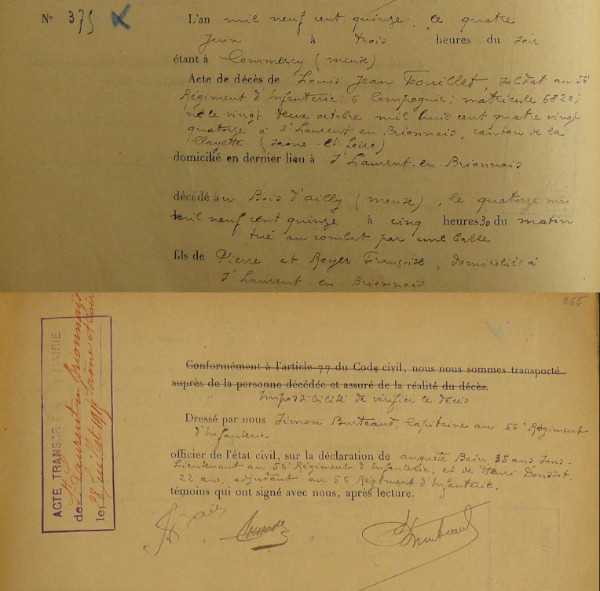 N° 375 L'an mil neuf cent quinze, le quatre
Juin à trois heures du soir
étant à Commercy (Meuse)
Acte de décès de Louis Jean Fouillet, soldat au 56e
Régiment d'Infanterie, 6 Compagnie; matricule 6820;
né le vingt deux octobre mil huit cent quatre vingt
quatorze à St Laurent en Brionnais, canton de la
Clayette (Saône-et-Loire)
domicilié en dernier lieu à St Laurent-en-Brionnais
décédé au Bois d'ailly (meuse), le quatorze mai
mil neuf cent quinze à cinq heures 30 du matin
tué au combat par une balle
fils de Pierre et Royer Françoise, domiciliés à
St Laurent-en-Brionnais
266
Conformément à l'article 77 du Code civil, nous nous sommes transporté
auprès de la personne décédée et assuré de la réalité du décès.
Impossibilité de vérifier le décès
Dressé par nous Simon Burteaud, Capitaine au 56e Régiment
d'Infanterie
officier de l'état civil, sur la déclaration de auguste Bain, 35 ans, Sous-
Lieutenant au 56e Régiment d'Infanterie, et de Henri
22 ans, adjudant au 56 Régiment d'Infanterie.
témoins qui ont signé avec nous, après lecture.
ACTE TRANSCRIT MAIRIE
de St Laurent en Brionnais
le Juillet Saône et Loire